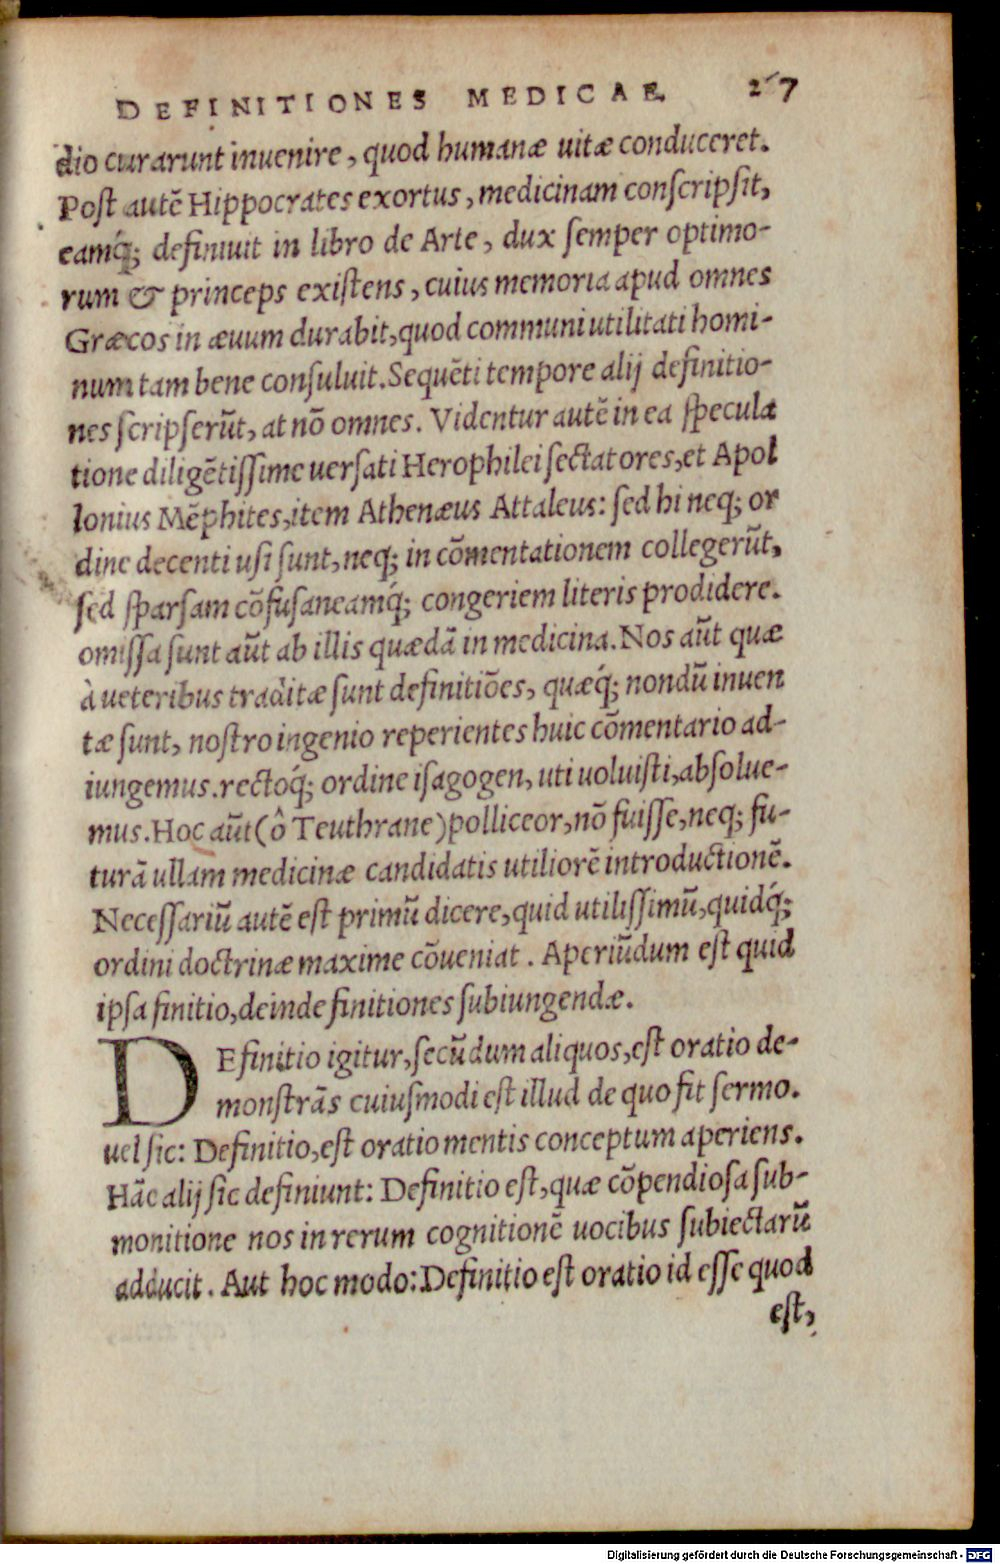 DEFINITIONES MEDICAE. 267
dio curarunt inuenire, quod humanæ uitæ conduceret.
Post autē Hippocrates exortus, medicinam conscripsit,
eamq́; definiuit in libro de Arte, dux semper optimo-
rum & princeps existens, cuius memoria apud omnes
Græcos in æuum durabit, quod communi utilitati homi-
num tam bene consuluit. Sequēti tempore alij definitio-
nes scripserūt, at nō omnes. Videntur autē in ea specula
tione diligētissime uersati Herophilei sectatores, et Apol
lonius Mēphites, item Athenæus Attaleus: sed hi neq; or
dine decenti usi sunt, neq; in cōmentationem collegerūt,
sed sparsam cōfusaneamq́; congeriem literis prodidere.
omissa sunt aūt ab illis quædā in medicina. Nos aūt quæ
à ueteribus traditæ sunt definitiōes, quæq́; nondū inuen
tæ sunt, nostro ingenio reperientes huic cōmentario ad-
iungemus. rectoq́; ordine isagogen, uti uoluisti, absolue-
mus. Hoc aūt (ô Teuthrane) polliceor, nō fuisse, neq; fu-
turā ullam medicinæ candidatis utiliorē introductionē.
Necessariū autē est primū dicere, quid utilissimū, quidq́;
ordini doctrinæ maxime cōueniat. Aperiūdum est quid
ipsa finitio, deinde finitiones subiungendæ.
DEfinitio igitur, secūdum aliquos, est oratio de-
monstrās cuiusmodi est illud de quo fit sermo.
uel sic: Definitio, est oratio mentis conceptum aperiens.
Hāc alij sic definiunt: Definitio est, quæ cōpendiosa sub-
monitione nos in rerum cognitionē uocibus subiectarū
adducit. Aut hoc modo: Definitio est oratio id esse quod
est,
Digitalisierung gefördert durch die Deutsche Forschungsgemeinschaft - DFG